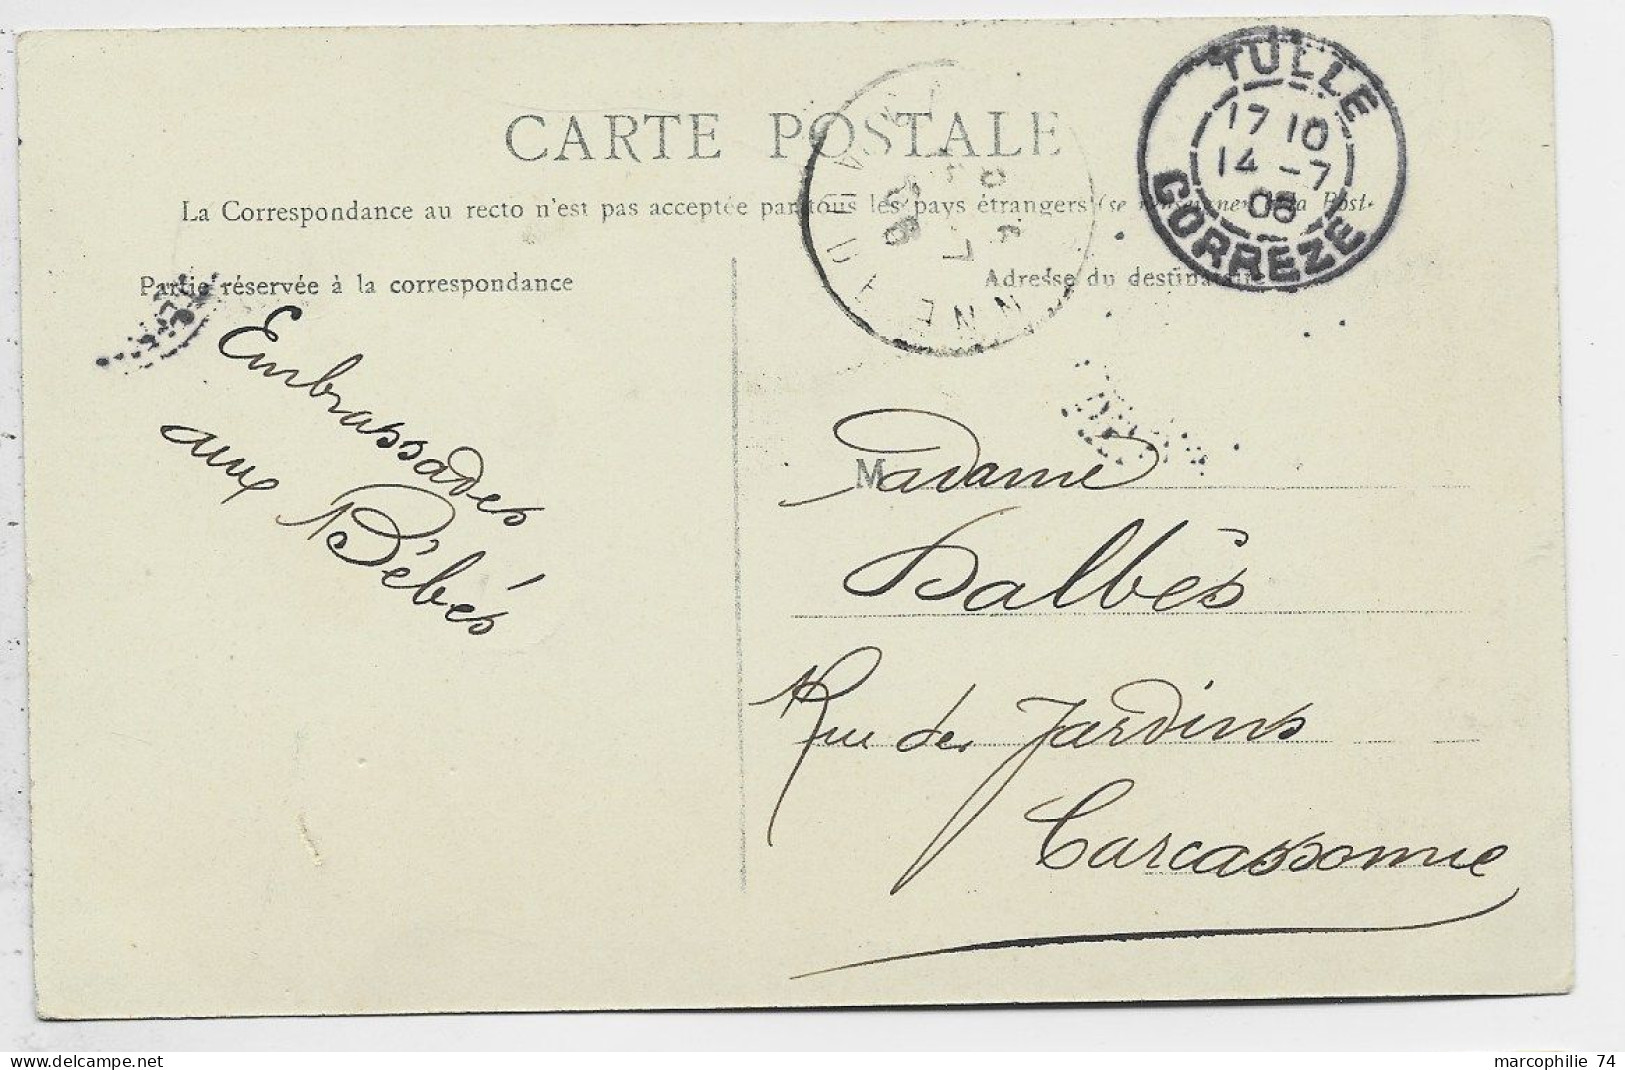 CARTE POSTALE
La Correspondance au recto n'est pas acceptée par tous les pays étrangers (se à la Post.
Partie réservée à la correspondance
Adresse du destinataire
TULLE
17 10
14 -7
08
CORREZE
Embrassades
aux Bébés
Madame
Dalbès
Rue des Jardins
Carcassonne
marcophilie 74